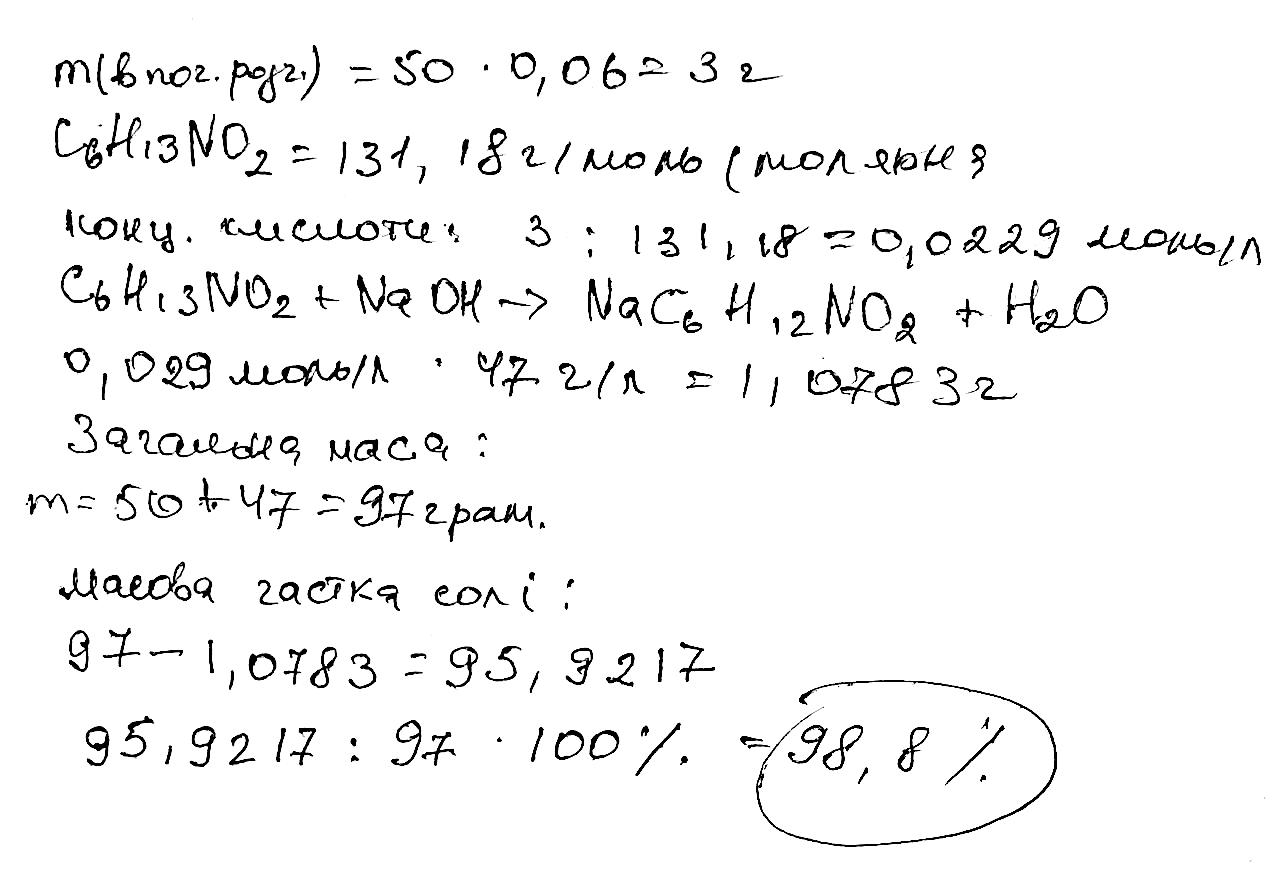 m(в поч. розч.) = 50 · 0,06 = 3 г
C6H13NO2 = 131,18 г/моль (молярна
конц. кислоти: 3 : 131,18 = 0,0229 моль/л
C6H13NO2 + NaOH → NaC6H12NO2 + H2O
0,029 моль/л · 47 г/л = 1,0783 г
Загальна маса:
m = 50 + 47 = 97 грам.
Масова частка солі:
97 - 1,0783 = 95,9217
95,9217 : 97 · 100%. = 98,8%